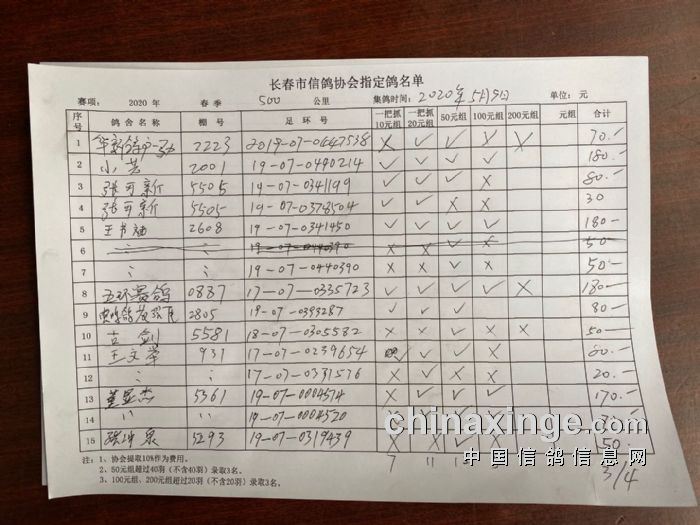 长春市信鸽协会指定鸽名单
赛项: 2020 年 春季 500 公里 集鸽时间: 2020年5月9日 单位: 元
序号 鸽舍名称 棚号 足环号 一把抓10元组 一把抓20元组 50元组 100元组 200元组 元组 合计
1 2223 2019-07-0447538 × ✓ ✓ × × 70.-
2 小芳 2001 19-07-0490214 ✓ ✓ ✓ ✓ 180.-
3 张可新 5505 19-07-0341199 ✓ ✓ ✓ × 80.-
4 张可新 5505 19-07-0378504 ✓ ✓ × × 30
5 2608 19-07-0341450 ✓ ✓ ✓ ✓ 180-
6 〃 〃 19-07-0440390 × × ✓ × 50-
7 〃 〃 19-07-0440390 × × ✓ × 50.-
8 五环赛鸽 0887 17-07-0335723 ✓ ✓ ✓ ✓ × 180-
9 2805 19-07-0393287 ✓ ✓ ✓ 80.-
10 古剑 5581 18-07-0305582 × × ✓ × × 50-
11 王文学 931 17-07-0239654 ✓ ✓ ✓ × 80.-
12 〃 〃 17-07-0331576 × ✓ × × 20.-
13 5361 19-07-0004514 × ✓ ✓ ✓ 170.-
14 〃 〃 19-07-0004520
15 5293 19-07-0319439 × × ✓ × 50.-
注: 1、协会提取10%作为费用。
2、50元组超过40羽(不含40羽)录取3名。
3、100元组、200元组超过20羽(不含20羽)录取3名。
7 11
3/4
chinaxinge.com
中国信鸽信息网